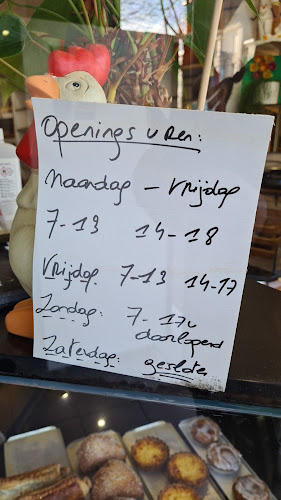 Openings uren:
Maandag - Vrijdag
7-13 14-18
Vrijdag 7-13 14-17
Zondag: 7-17u
doorlopend
Zaterdag: gesloten